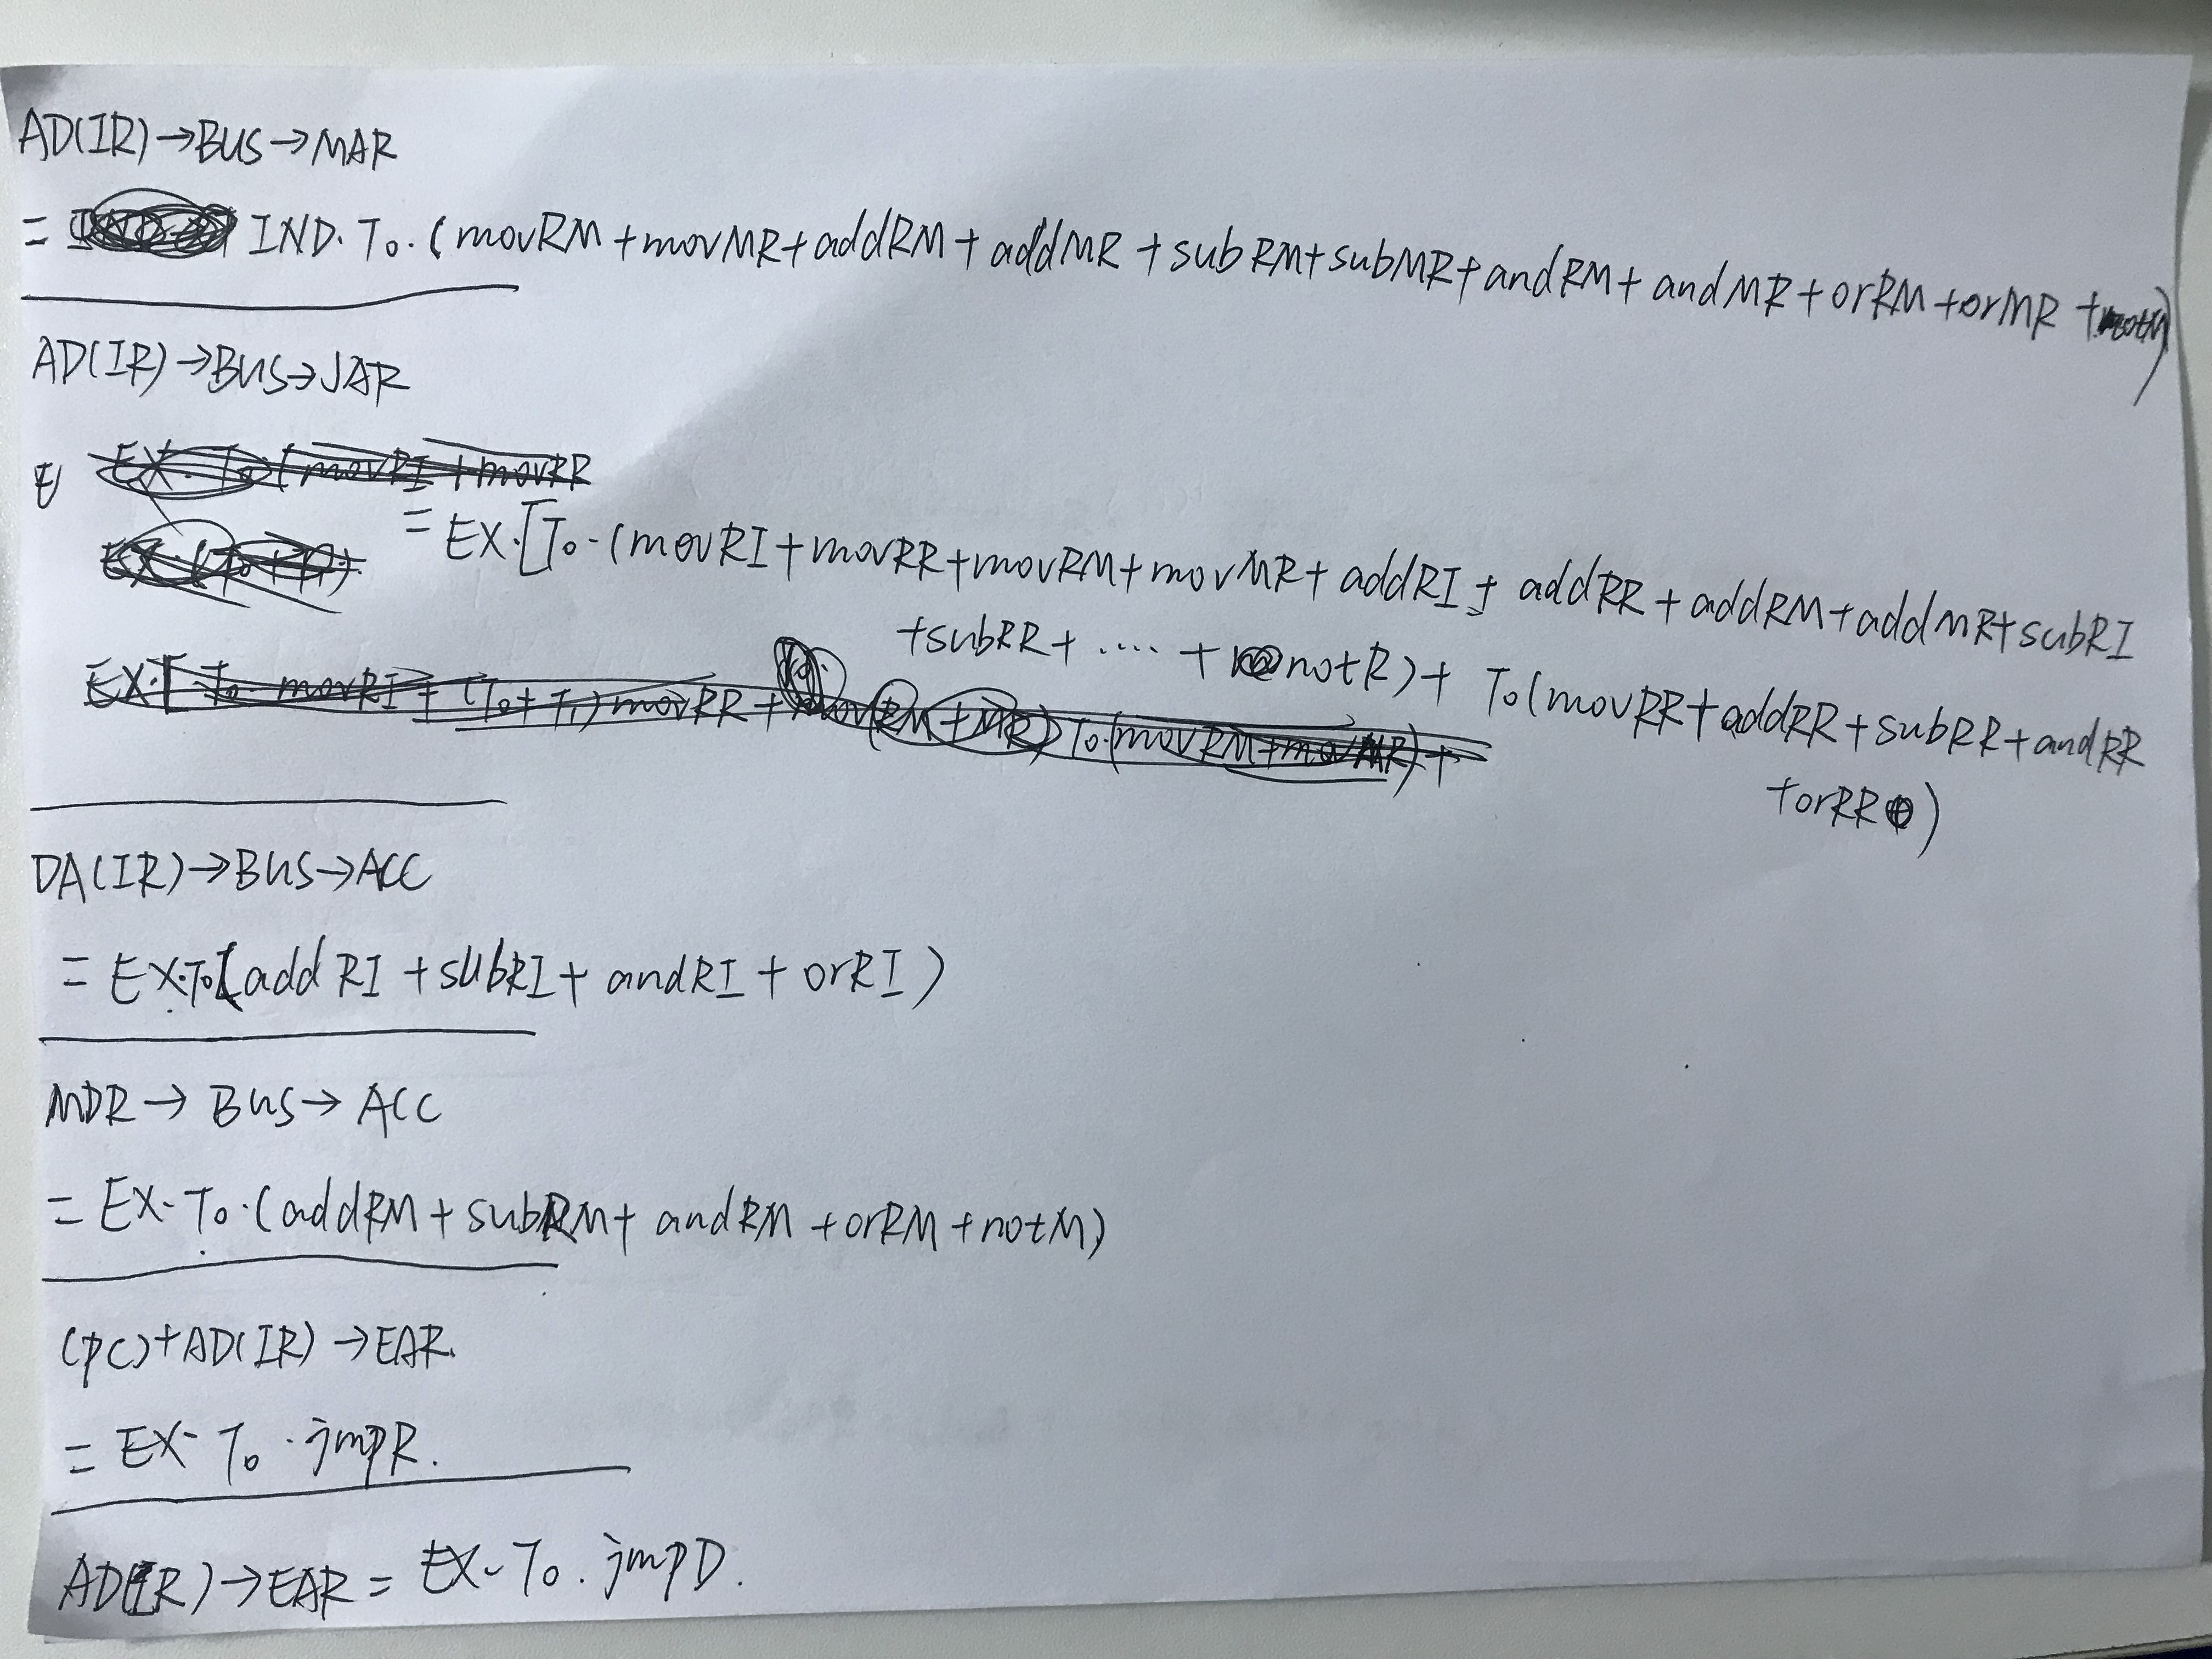 AD(IR)→BUS→MAR
= IND·T₀·(movRM+movMR+addRM+addMR+subRM+subMR+andRM+andMR+orRM+orMR+notM)
AD(IR)→BUS→JAR
EX·T₀(movRI+movRR
= EX·[T₀·(movRI+movRR+movRM+movMR+addRI+addRR+addRM+addMR+subRI
+subRR+····+notR)+T₀(movRR+addRR+subRR+andRR
+orRR)
EX·[T₀·movRI+(T₀+T₁)movRR+ T₀·(movRM+movMR)+
DA(IR)→BUS→ACC
= EX·T₀(addRI+subRI+andRI+orRI)
MDR→BUS→ACC
= EX·T₀·(addRM+subRM+andRM+orRM+notM)
(PC)+AD(IR)→EAR.
= EX·T₀·jmpR.
AD(IR)→EAR = EX·T₀·jmpD.